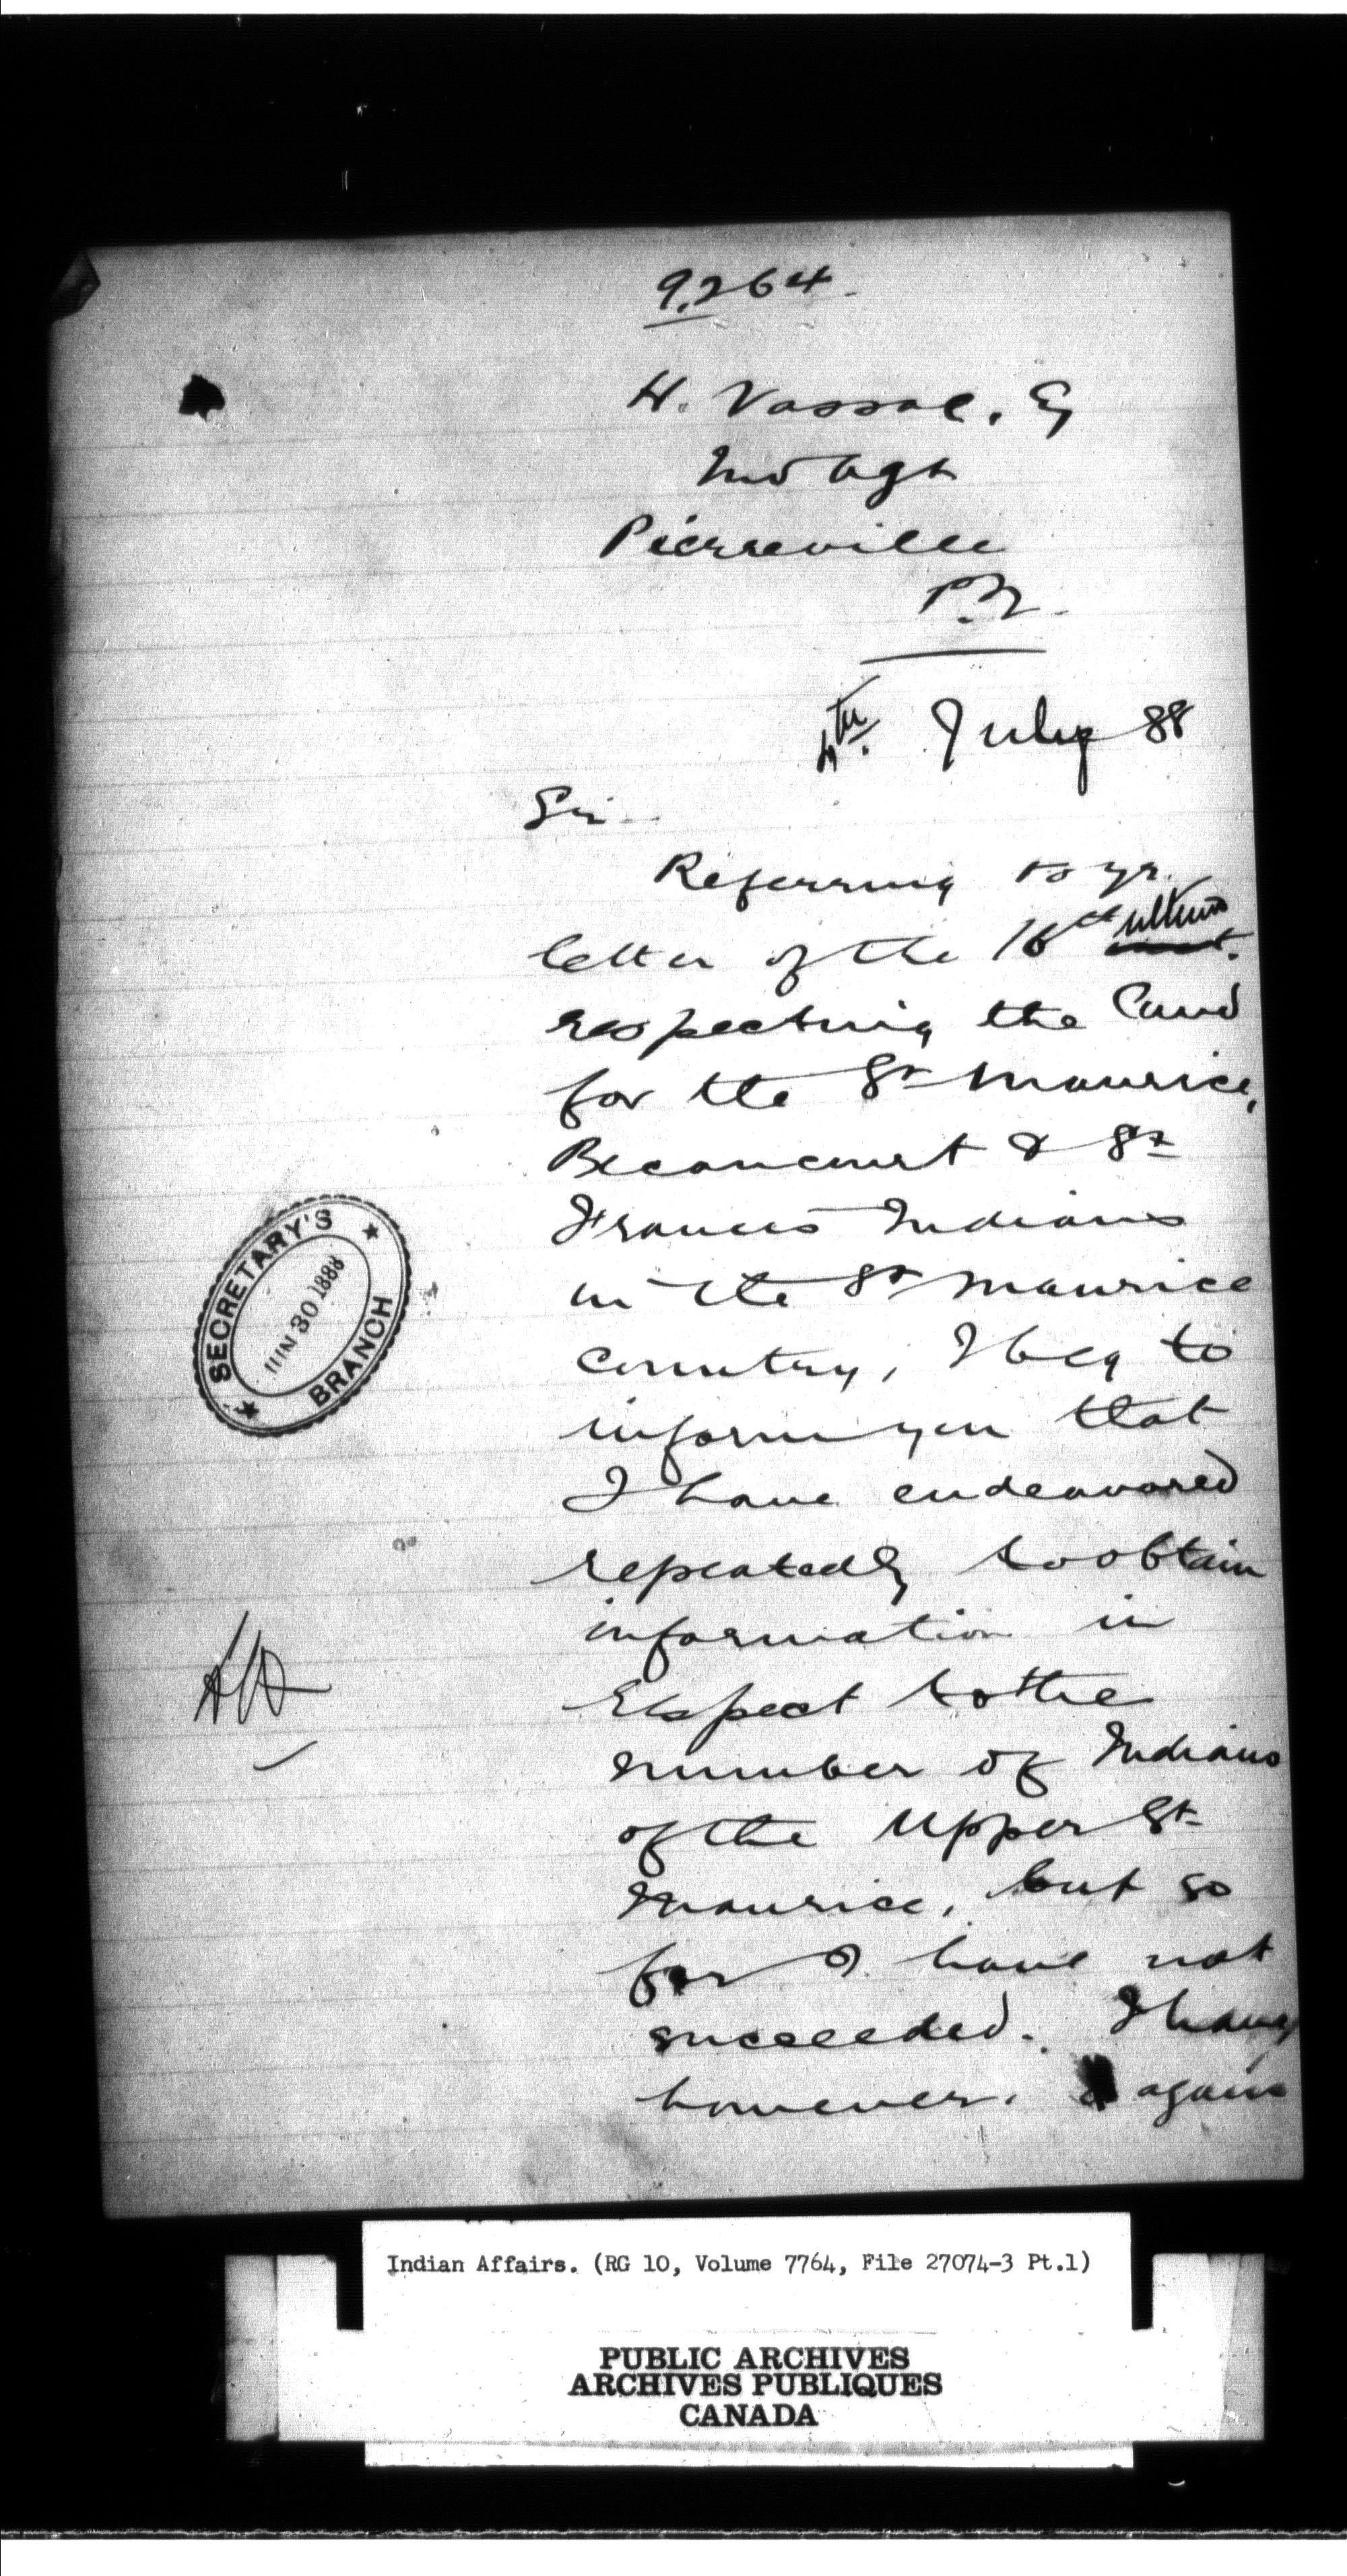 9,264
H. Vassal, Eq
Ind Agt
Pierreville
P.Q.
4th. July 88
Sir
Referring to yr.
letter of the 16th ultimo
respecting the Land
for the St Maurice,
Becancourt & St
Francis Indians
in the St Maurice
country, I beg to
inform you that
I have endeavored
repeatedly to obtain
information in
respect to the
number of Indians
of the Upper St
Maurice, but so
far I have not
succeeded. I have
however, again
SECRETARY'S
JUN 30 1888
BRANCH
Indian Affairs. (RG 10, Volume 7764, File 27074-3 Pt.1)
PUBLIC ARCHIVES
ARCHIVES PUBLIQUES
CANADA